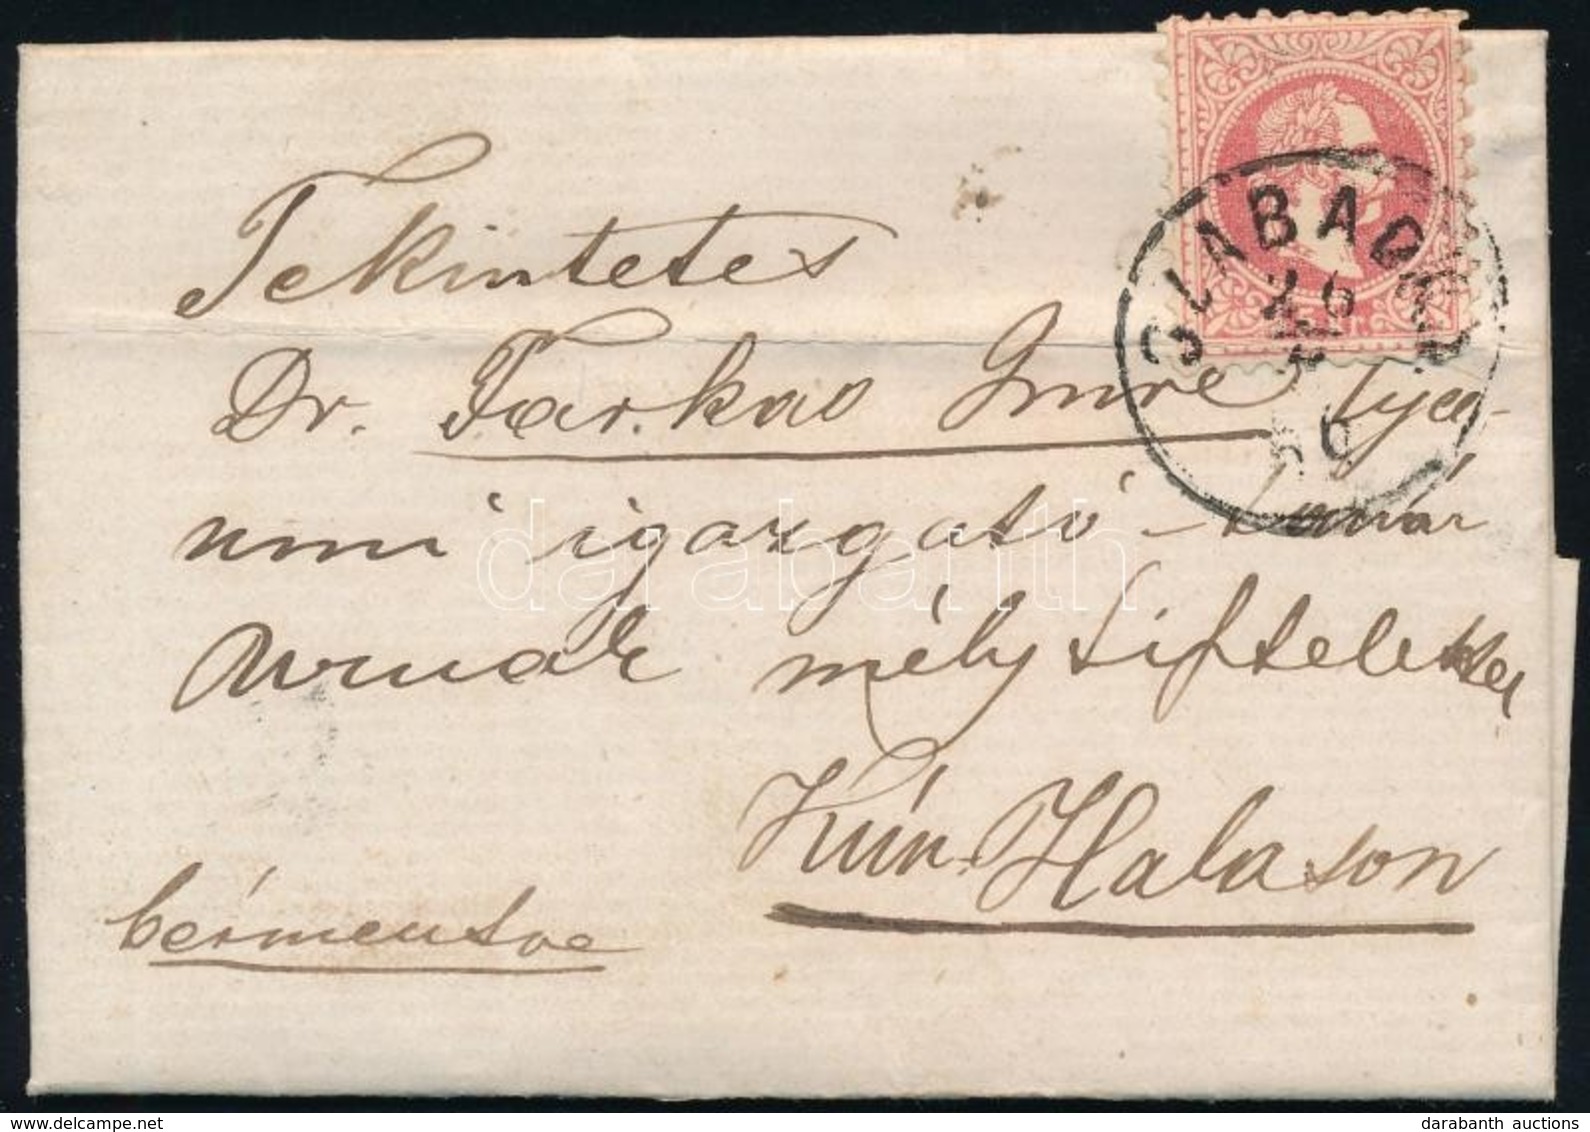 Tekintetes
Dr. Farkas Imre gym-
nasiumi igazgató-tanár
Urnak mély tisztelettel
Kún-Halason
bérmentve
26
darabanth
darabanth auctions
www.delcampe.net